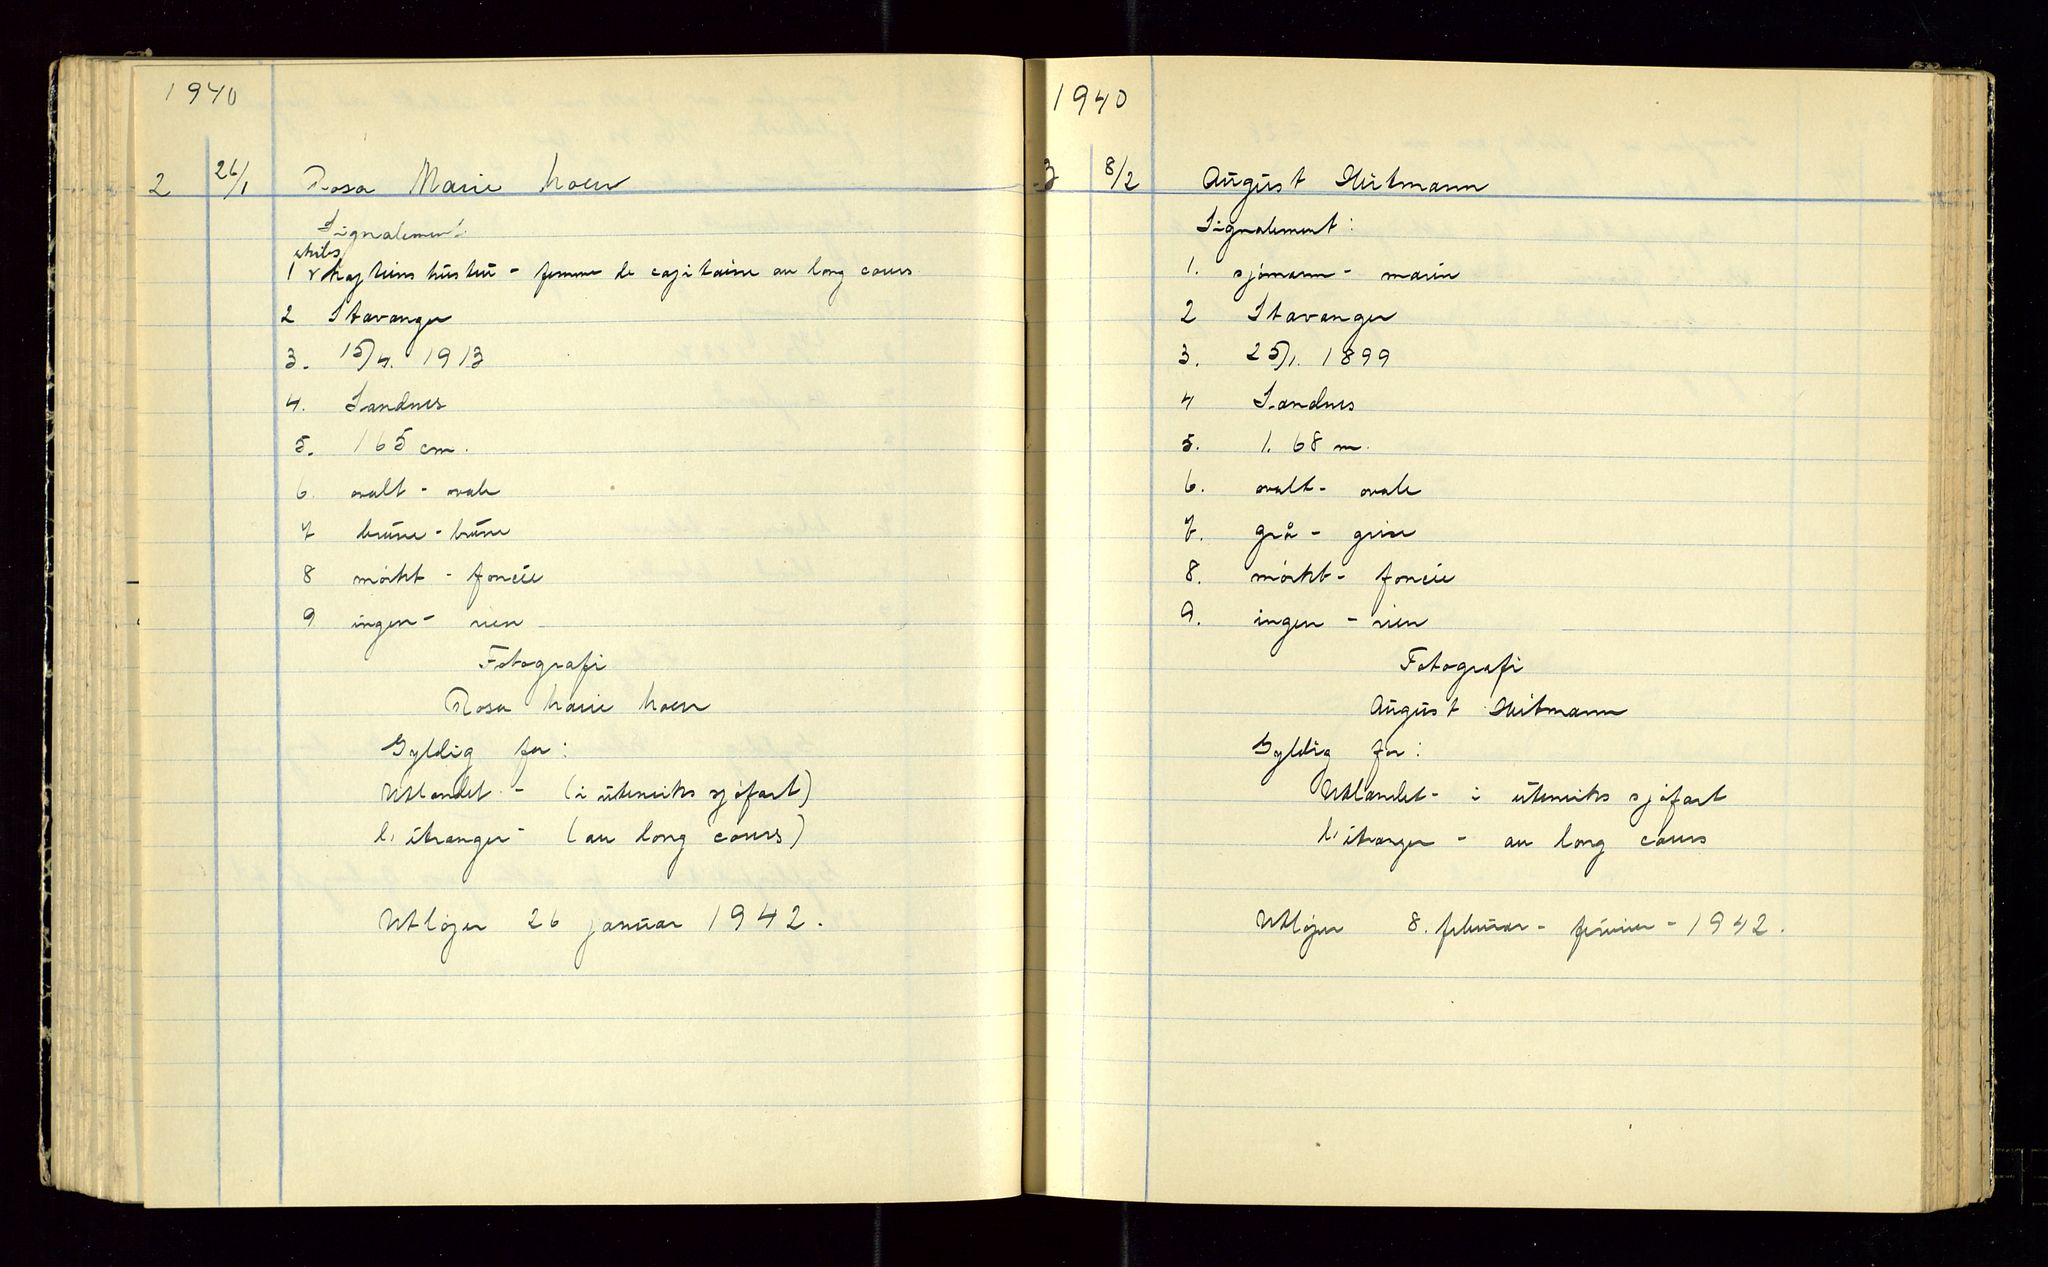 1940
2 26/1 Rosa Marie Moen
Signalement:
skibs
1 kapteins hustru - femme de capitaine au long cours
2 Stavanger
3. 15/4. 1913
4. Sandnes
5. 165 cm.
6. ovalt - ovale
7 brune - brune
8 mörkt - foncée
9 ingen - rien
Fotografi
Rosa Marie Moen
Gyldig for:
Utlandet - (i utenriks sjøfart)
l'étranger - (au long cours)
Utløper 26 januar 1942.
1940
3 8/2 August Heitmann
Signalement:
1. sjömann - marin
2 Stavanger
3. 25/1. 1899
4 Sandnes
5. 1.68 m.
6. ovalt - ovale
7. grå - grise
8. mörkt - foncée
9. ingen - rien
Fotografi
August Heitmann
Gyldig for:
Utlandet - i utenriks sjøfart
l'étranger - au long cours
Utløper 8. februar - février - 1942.